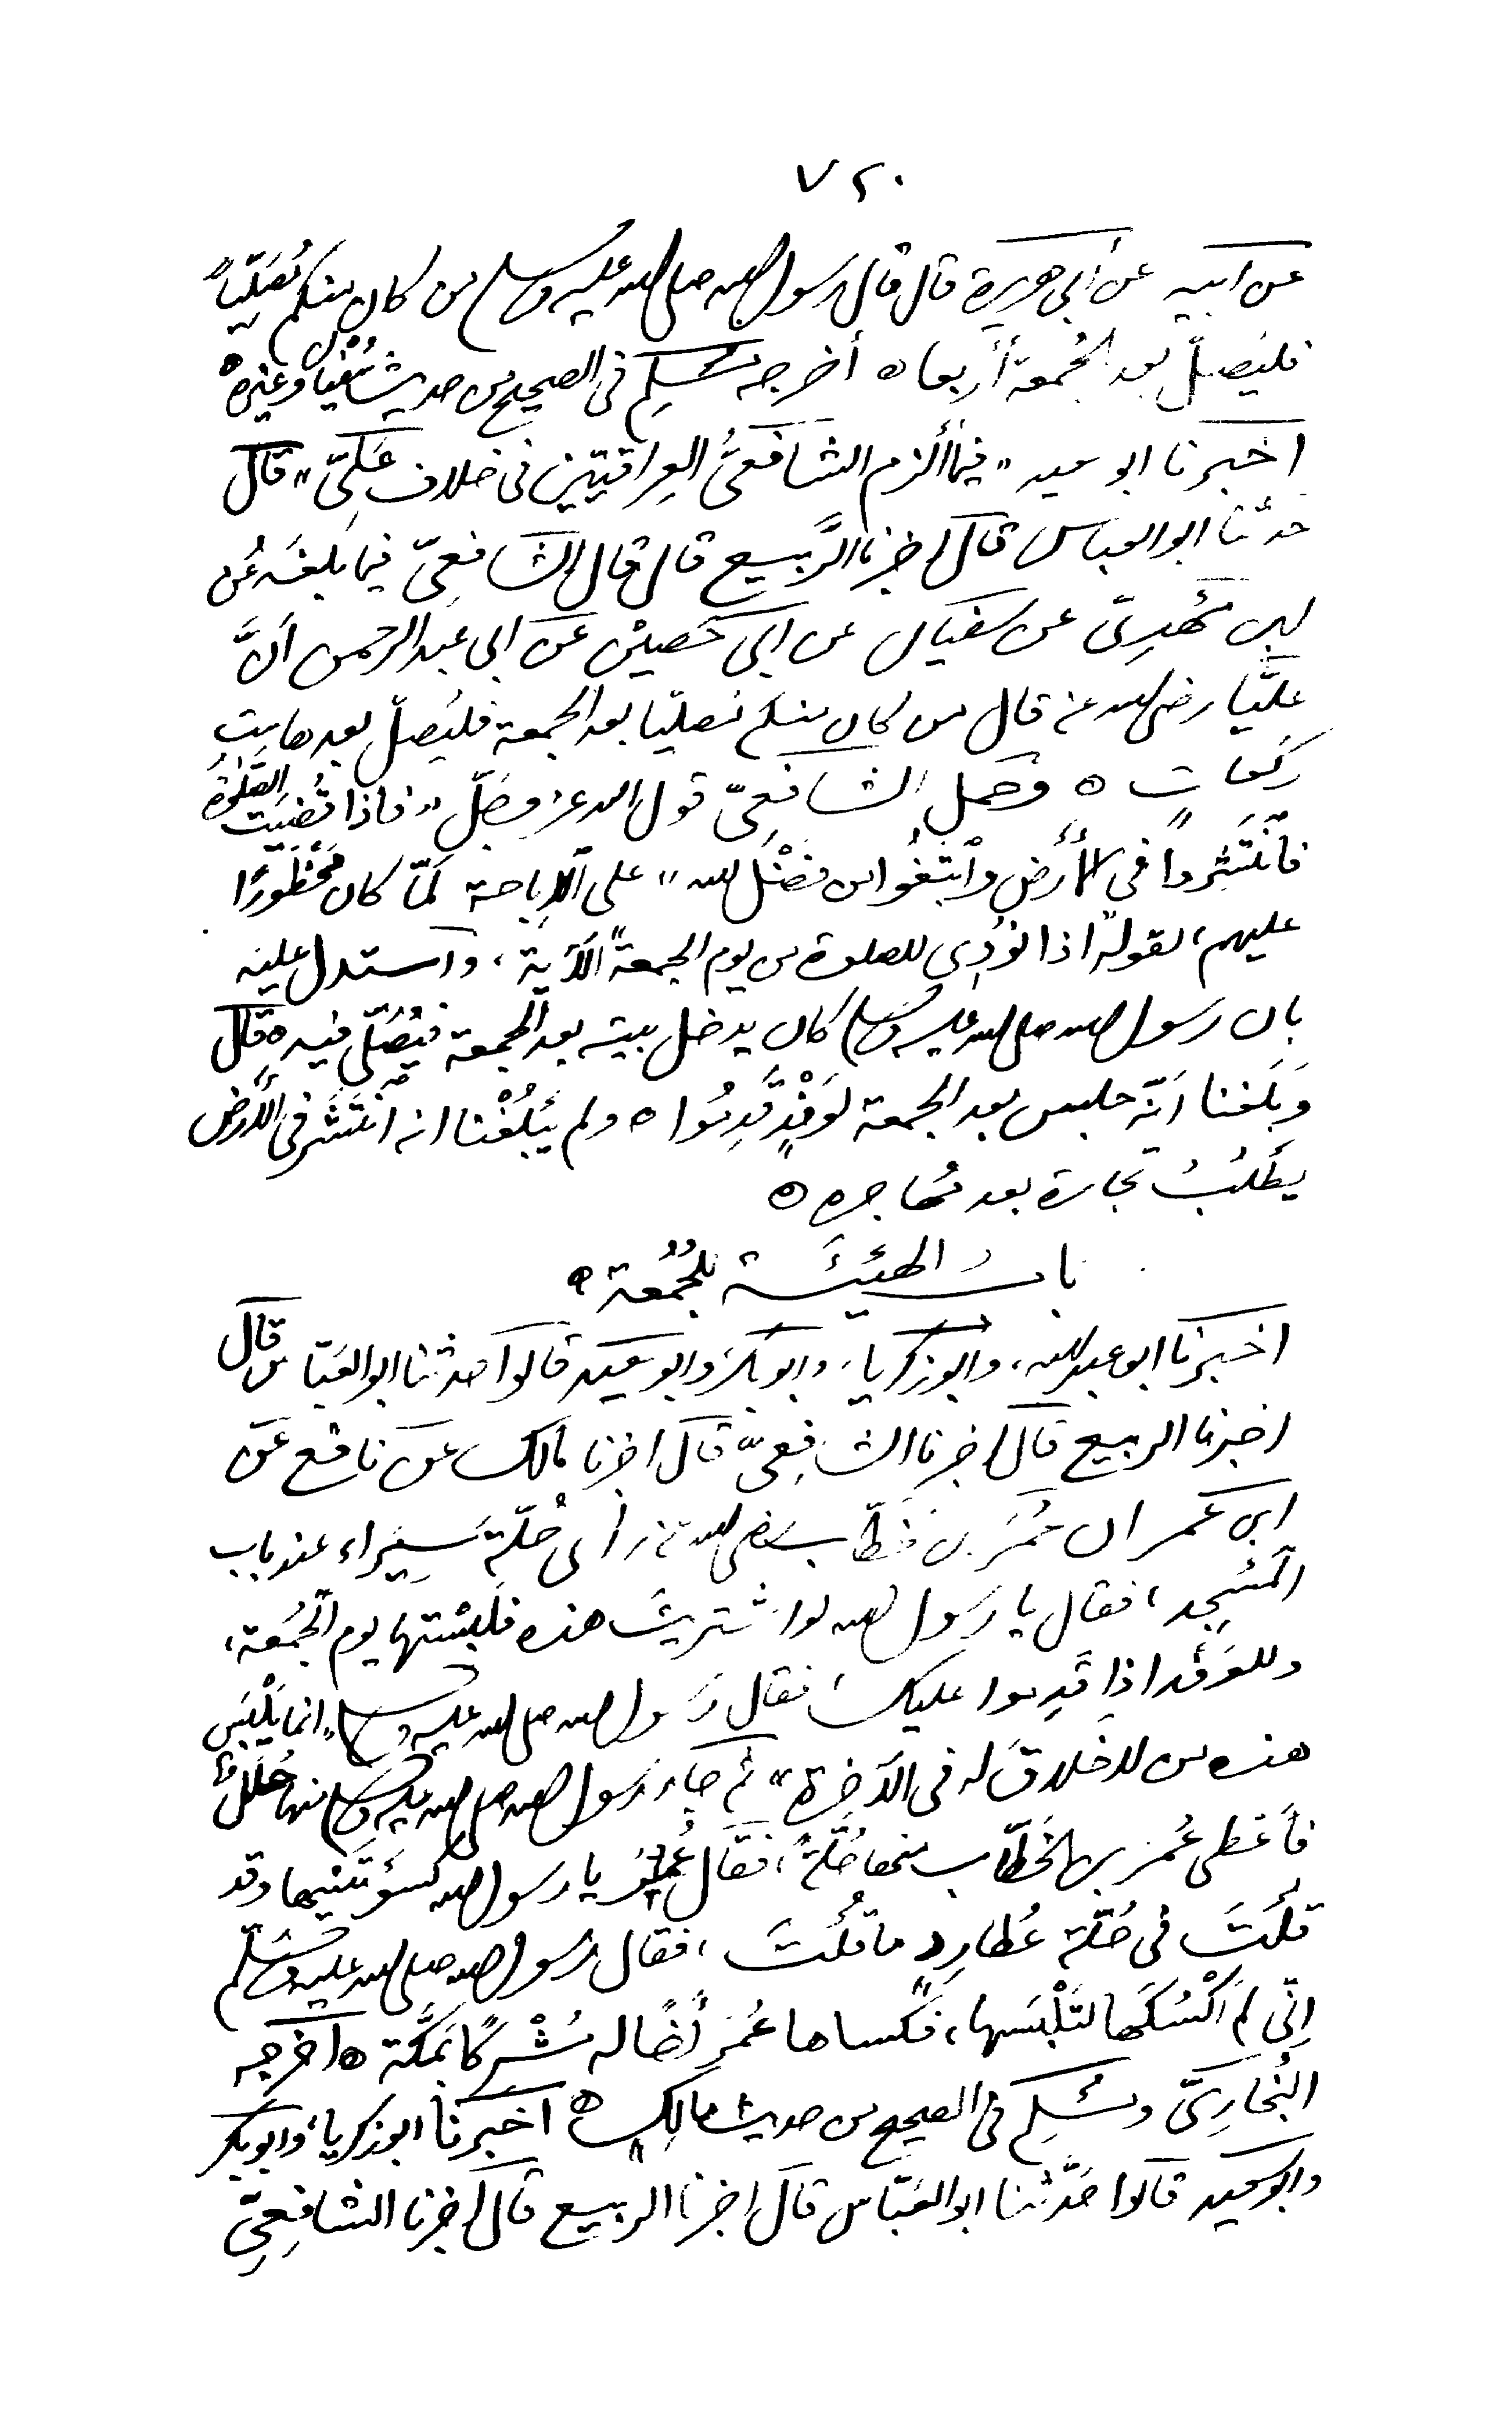 ٧٢٠
عن ابيه عن أبى هريرة قال قال رسول الله صلى الله عليه وسلم من كان منكم مُصَلِّيًا
فليُصَلّ بعد الجُمعة أربعا ٥ أخرجه مُسْلِم فى الصحيح من حديث سُفْيان وغيره
اخبرنا ابو سعيد "فيما ألزم الشافعىُّ العِراقيّين فى خلاف عَلِىّ" قال
حدثنا ابو العباس قال اخبرنا الرَّبيع قال قال الشافعِىّ فيما بلغه عن
ابن مَهْدِىّ عن سفيان عن ابى حَصين عن ابى عبد الرحمن انَّ
عليًّا رضى الله عنه قال من كان منكم مُصليّا بعد الجمعة فليُصلّ بعدها سِتّ
ركعاتٍ ٥ وحمل الشافعِىّ قول الله عز وجلّ "فاذا قُضِيَت الصّلوٰةُ
فَٱنْتَشِرُوا فى الْأَرْضِ وَٱبْتَغُوا من فَضْلِ الله" على الإباحة لمّا كان مَحْظورًا
عليهم، لقوله "اذا نودِى للصلوة من يوم الجمعة" الآية، واستدل عليه
بان رسول الله صلى الله عليه وسلم كان يدخل بيته بعد الجمعة فيُصَلّى فيه ٥ قال
وَبَلَغنا انّه جلس بعد الجمعة لوَفْدٍ قَدِمُوا ٥ ولم يَبْلُغْنا انه ٱنْتَشَر فى الأرض
يطْلُبُ تجارة بعد مُهاجره ٥
بابُ الهَيْئَة للجُمُعة ٥
اخبرنا ابو عبد الله، وابو زكرياء، وابو بكر وابو سعيد قالوا حدثنا ابو العبّاس قال
اخبرنا الربيع قال اخبرنا الشافِعىّ قال اخبرنا مالك عن نافع عن
ابن عمر ان عُمَر بن خَطّاب رضى الله عنه رأى حُلّة سِيَراء عند باب
المَسْجِد، فقال يا رَسول الله لو اشتريتَ هذه فَلَبِسْتها يوم الجُمُعة،
وللوَفْد اذا قَدِموا عليك، فقال رَسول الله صلى الله عليه وسلم "انما يَلْبَس
هذه من لا خلاقَ له فى الآخرة" ثم جاء رَسول الله صلى الله عليه وسلم منها حُلَلٌ
فأعْطى عُمَر بن الخَطّاب منها حُلّةً، فقال عُمَر يا رسول الله كسَوْتَنيها وقد
قُلْتَ فى حُلّة عُطارِد ما قُلْتَ، فقال رَسول الله صلى الله عليه وسَلّم
اِنّى لم أَكْسُكَها لتَلْبَسها، فَكساها عُمَر أخًا له مُشْرِكًا بمَكّة ٥ اخرجه
البُخارِىّ ومُسْلِم فى الصحيح من حديث مالِك ٥ اخبرنا ابو زكرياء وابو بكر
وابو سعيد قالوا حَدّثنا ابو العَبّاس قال اخبرنا الربيع قال اخبرنا الشافِعِىّ